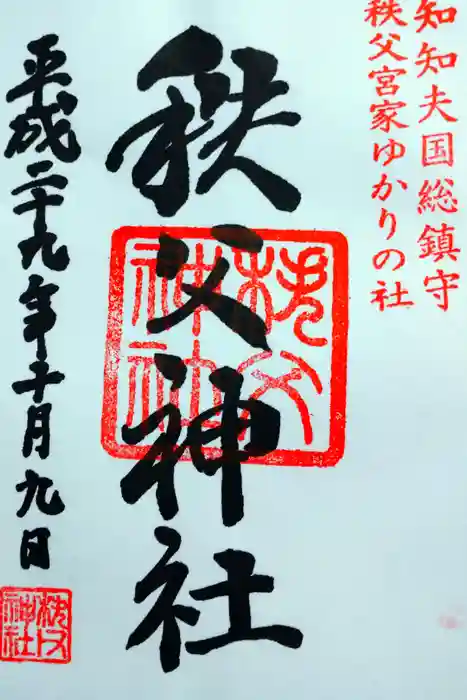 知知夫国総鎮守
秩父宮家ゆかりの社
秩父神社
秩父神社
平成二十九年十月九日
秩父神社